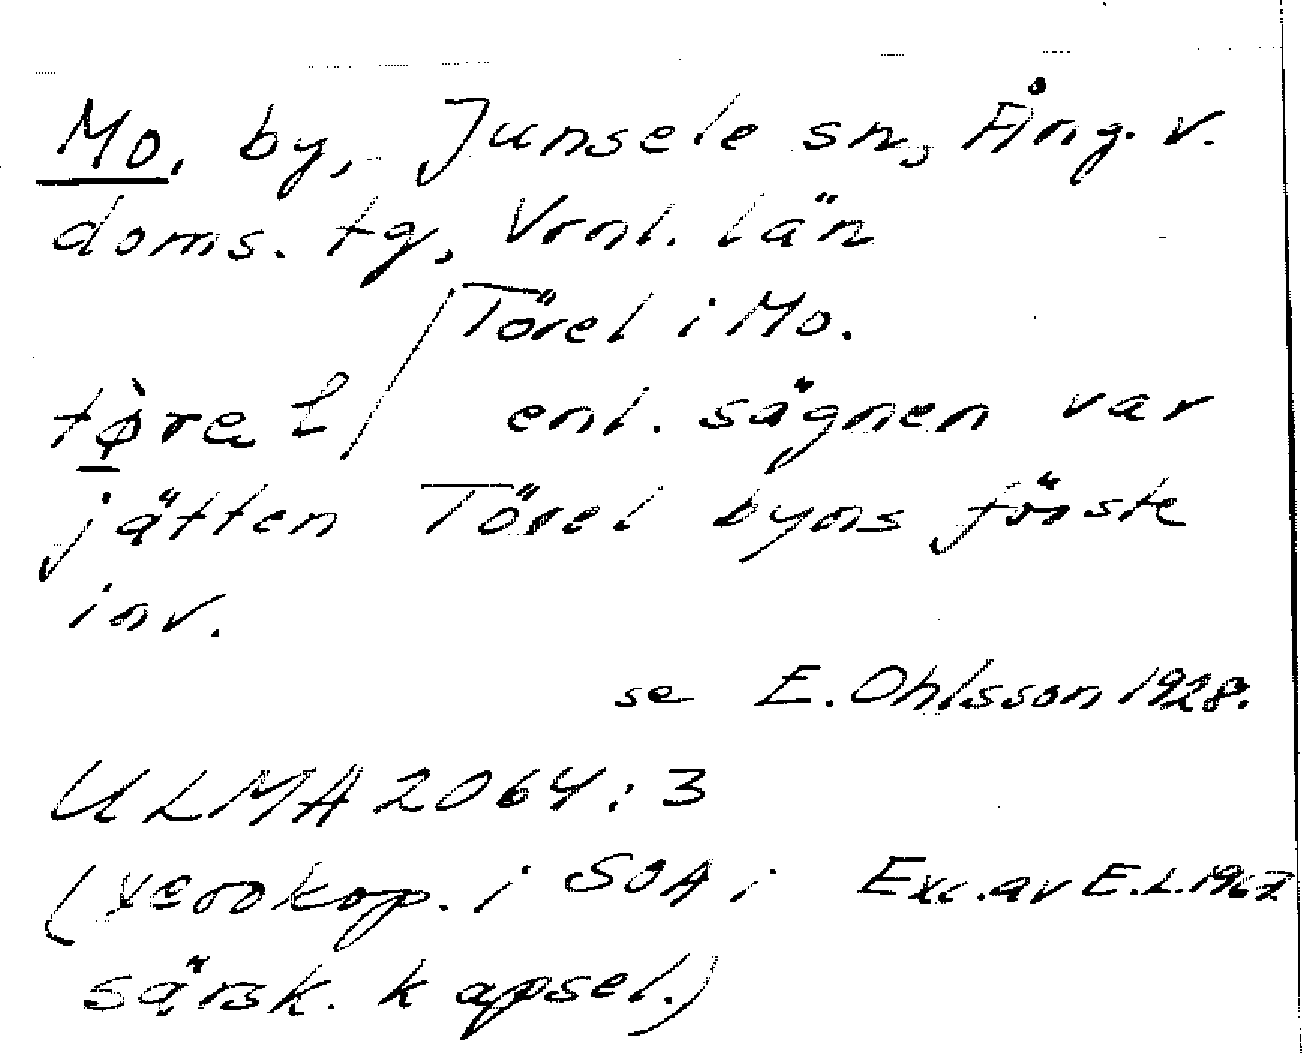 Mo, by, Junsele sn, Ång. v.
doms. tg, Vrnl. län
Törel i Mo.
tø̀ral / enl. sägnen var
jätten Törel byns förste
inv.
se E. Ohlsson 1928.
ULMA 2064:3
(xerokop. i SOA i Exc. av E.L. 1967
särsk. kapsel.)